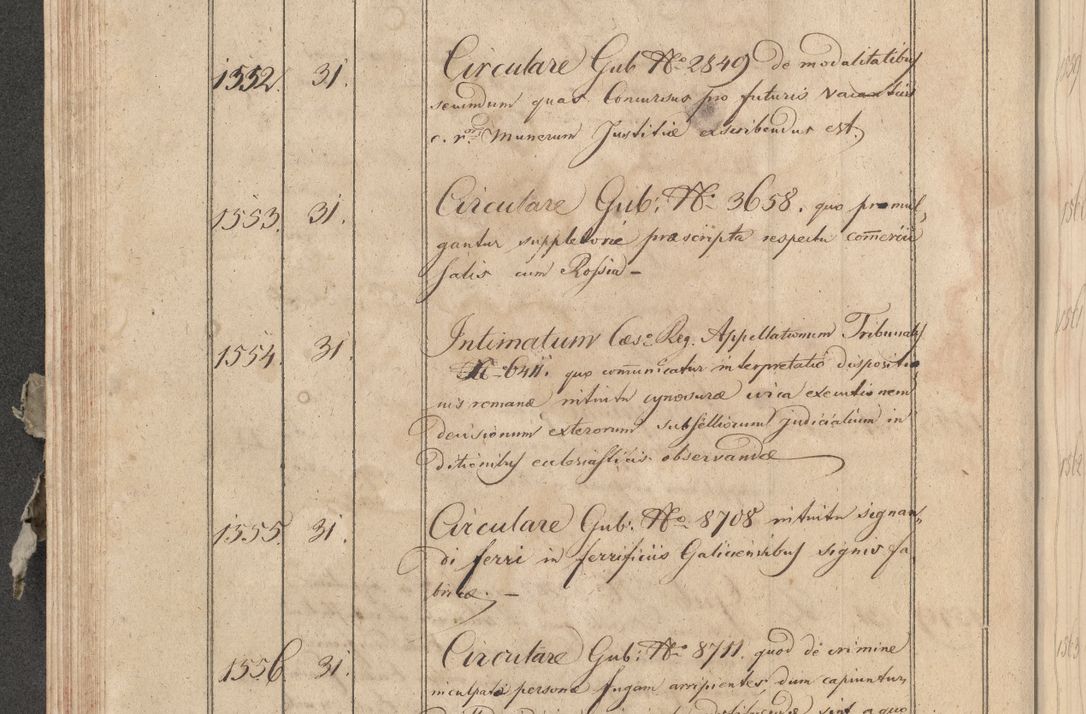 1552. 31. Circulare Gub No 2849 de modalitatibus
secundum quas Concursus pro futuris vacantiis
c. r. Munerum Justitiæ exscribendus est.
1553. 31. Circulare Gub: No 3658. quo promul,
gantur suppletoriè præscripta respectu comercii
salis cum Rossia –
1554. 31. Intimatum Cæs: Reg. Appellationum Tribunalis
No 6411. quo comunicatur interpretatio dispositio
nis romanæ intuitu cynosuræ circa executionem
decisionum exterorum subselliorum judicialium in
ditionibus ecclesiasticis observandæ
1555. 31. Circulare Gub: No 8708 intuitu signan,
di ferri in ferrificiis Galiciensibus signis fa
bricæ. –
1556 31. Circulare Gub: No 8711. quod de crimine
inculpatæ personæ fugam arripientes dum capiuntur
sint a quo